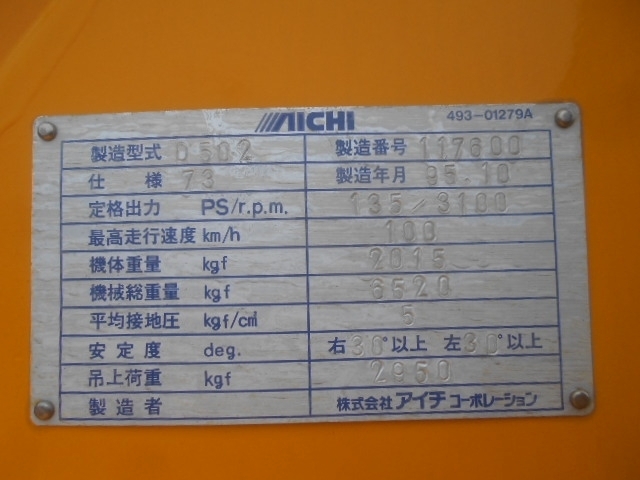 AICHI 493-01279A
製造型式 D502 製造番号 117600
仕様 73 製造年月 95.10
定格出力 PS/r.p.m. 135/3100
最高走行速度 km/h 100
機体重量 kgf 2015
機械総重量 kgf 6520
平均接地圧 kgf/cm² 5
安定度 deg. 右30°以上 左30°以上
吊上荷重 kgf 2950
製造者 株式会社アイチコーポレーション